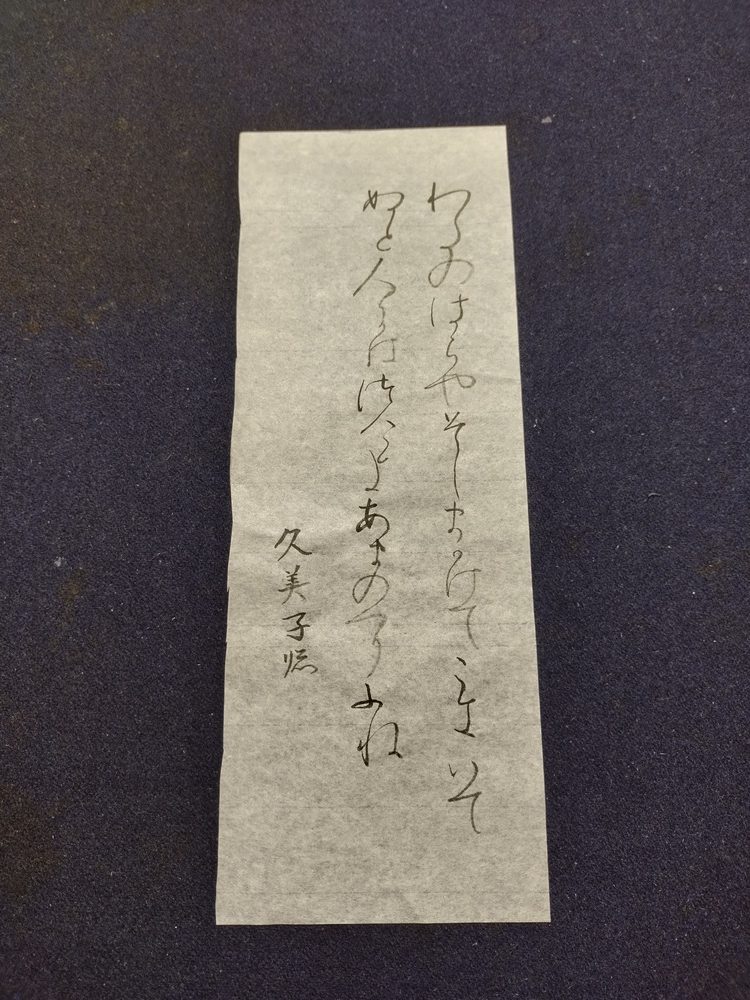 わたのはらやそしまかけてこきいて
ぬと人には徒介よあまのつりふね
久美子臨